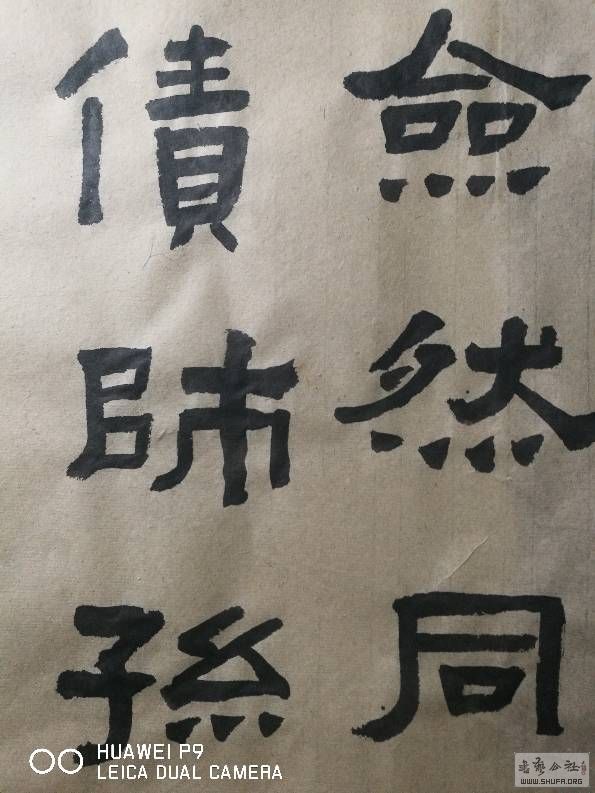 僉然同
債師孫
HUAWEI P9
LEICA DUAL CAMERA
书艺公社
WWW.SHUFA.ORG